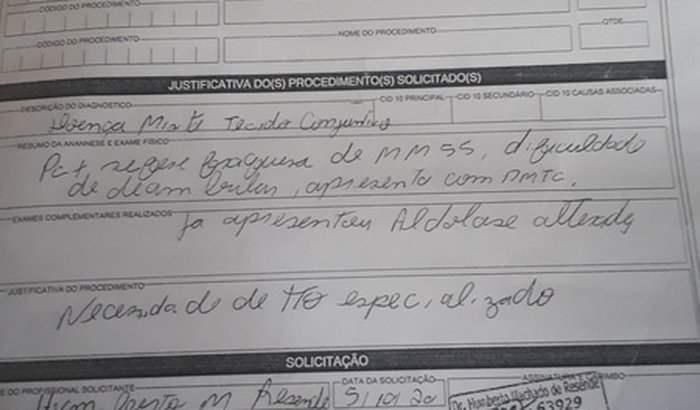 CÓDIGO DO PROCEDIMENTO
CÓDIGO DO PROCEDIMENTO
NOME DO PROCEDIMENTO
QTDE
JUSTIFICATIVA DO(S) PROCEDIMENTO(S) SOLICITADO(S)
DESCRIÇÃO DO DIAGNÓSTICO CID 10 PRINCIPAL CID 10 SECUNDÁRIO CID 10 CAUSAS ASSOCIADAS
Doença Mista Tecido Conjuntivo
RESUMO DA ANAMNESE E EXAME FÍSICO
Pct refere fraqueza de MMSS, dificuldade
de deambular, apresenta com DMTC.
EXAMES COMPLEMENTARES REALIZADOS
já apresentou Aldolase alterada
JUSTIFICATIVA DO PROCEDIMENTO
Necessidade de TTO especializado
SOLICITAÇÃO
DO PROFISSIONAL SOLICITANTE DATA DA SOLICITAÇÃO ASSINATURA E CARIMBO
M Resende
Dr. Humberto Machado de Resende
53929